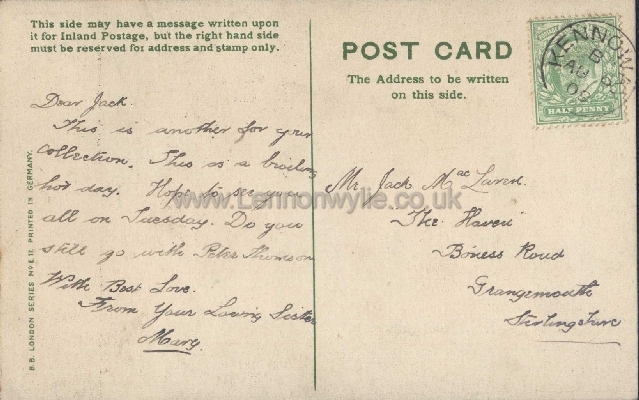 This side may have a message written upon
it for Inland Postage, but the right hand side
must be reserved for address and stamp only.
POST CARD
The Address to be written
on this side.
KENNOW
B
AU
HALF PENNY
Dear Jack.
This is another for your
collection. This is a broiling
hot day. Hope to see you
all on Tuesday. Do you
still go with Peter Thomson
With Best Love.
From Your Loving Sister
Mary.
Mr. Jack Mac Laren.
The Haven
Boness Road
Grangemouth
Stirlingshire
www.Lennonwylie.co.uk
B.B. LONDON SERIES No E.17. PRINTED IN GERMANY.